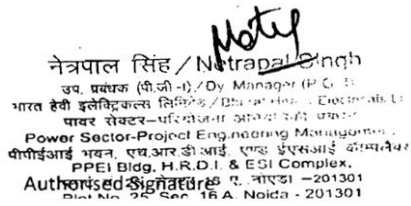 नेत्रपाल सिंह / Netrapal Singh
उप. प्रबंधक (पी.जी-I)./Dy Manager
भारत हेवी इलेक्ट्रिकल्स लिमिटेड /
पावर सेक्टर-परियोजना
Power Sector-Project Engineering
पीपीईआई भवन, एच.आर.डी.आई. एण्ड ईएसआई काम्पलैक्स
PPEI Bldg, H.R.D.I. & ESI Complex,
Authorised Signature ए. नोएडा -201301
Plot No. 25, Sec. 16 A, Noida - 201301